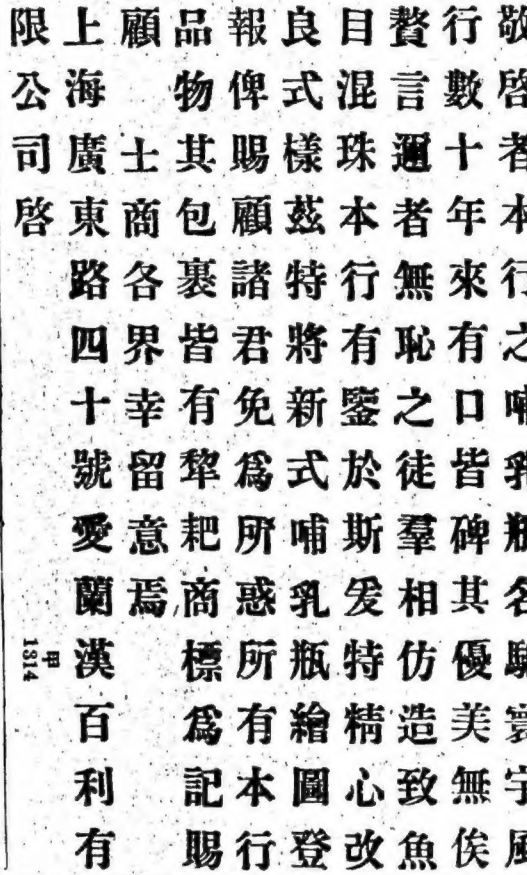 敬啓者本行之哺乳瓶名馳寰宇風
行數十年來有口皆碑其優美無俟
贅言邇者無恥之徒羣相仿造致魚
目混珠本行有鑒於斯爰特精心改
良式樣茲特將新式哺乳瓶繪圖登
報俾賜顧諸君免爲所惑所有本行
品物其包裹皆有犂耙商標爲記賜
顧 士商各界幸留意焉
上海廣東路四十號愛蘭漢百利有
限公司啓
甲1314